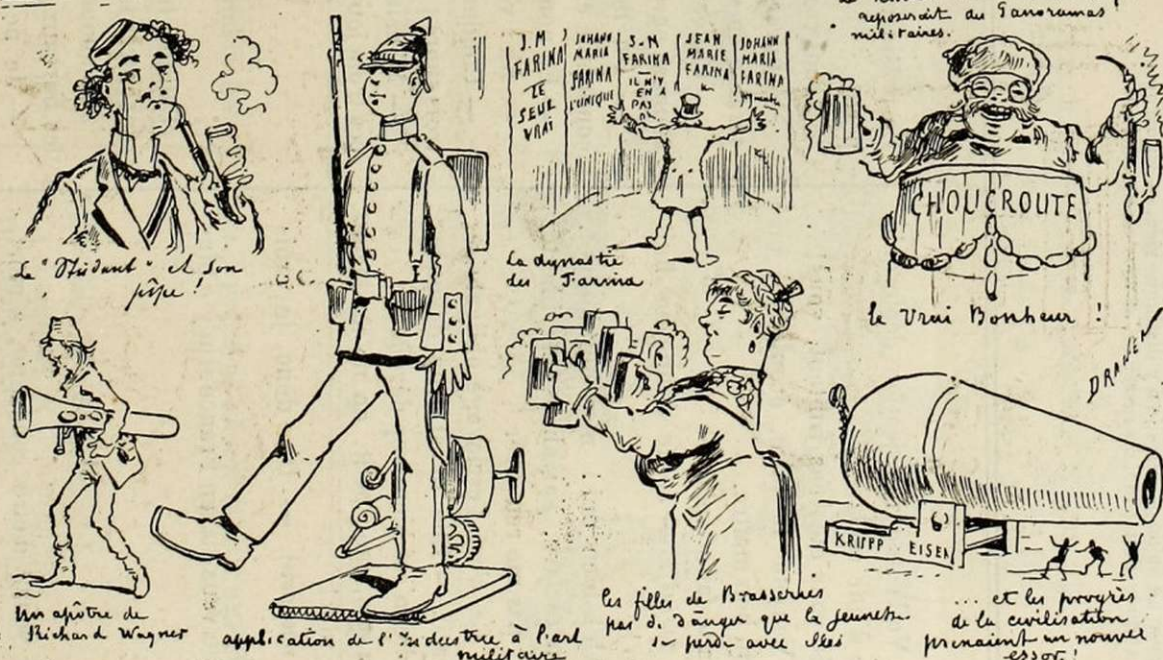 reposerait des Panoramas
militaires.
J. M
FARINA
LE
SEUL
VRAI
JOHANN
MARIA
FARINA
L'UNIQUE
J-M
FARINA
IL N'Y
EN A
PAS
JEAN
MARIE
FARINA
JOHANN
MARIA
FARINA
CHOUCROUTE
Le "Student" et son
pipe !
La dynastie
des Farina
le Vrai Bonheur !
DRANER
KRUPP EISEN
Un apôtre de
Richard Wagner
application de l'Industrie à l'art
militaire
les filles de Brasseries
pas de danger que la jeunesse
se perde avec elles
... et les progrès
de la civilisation
prenaient un nouvel
essor !